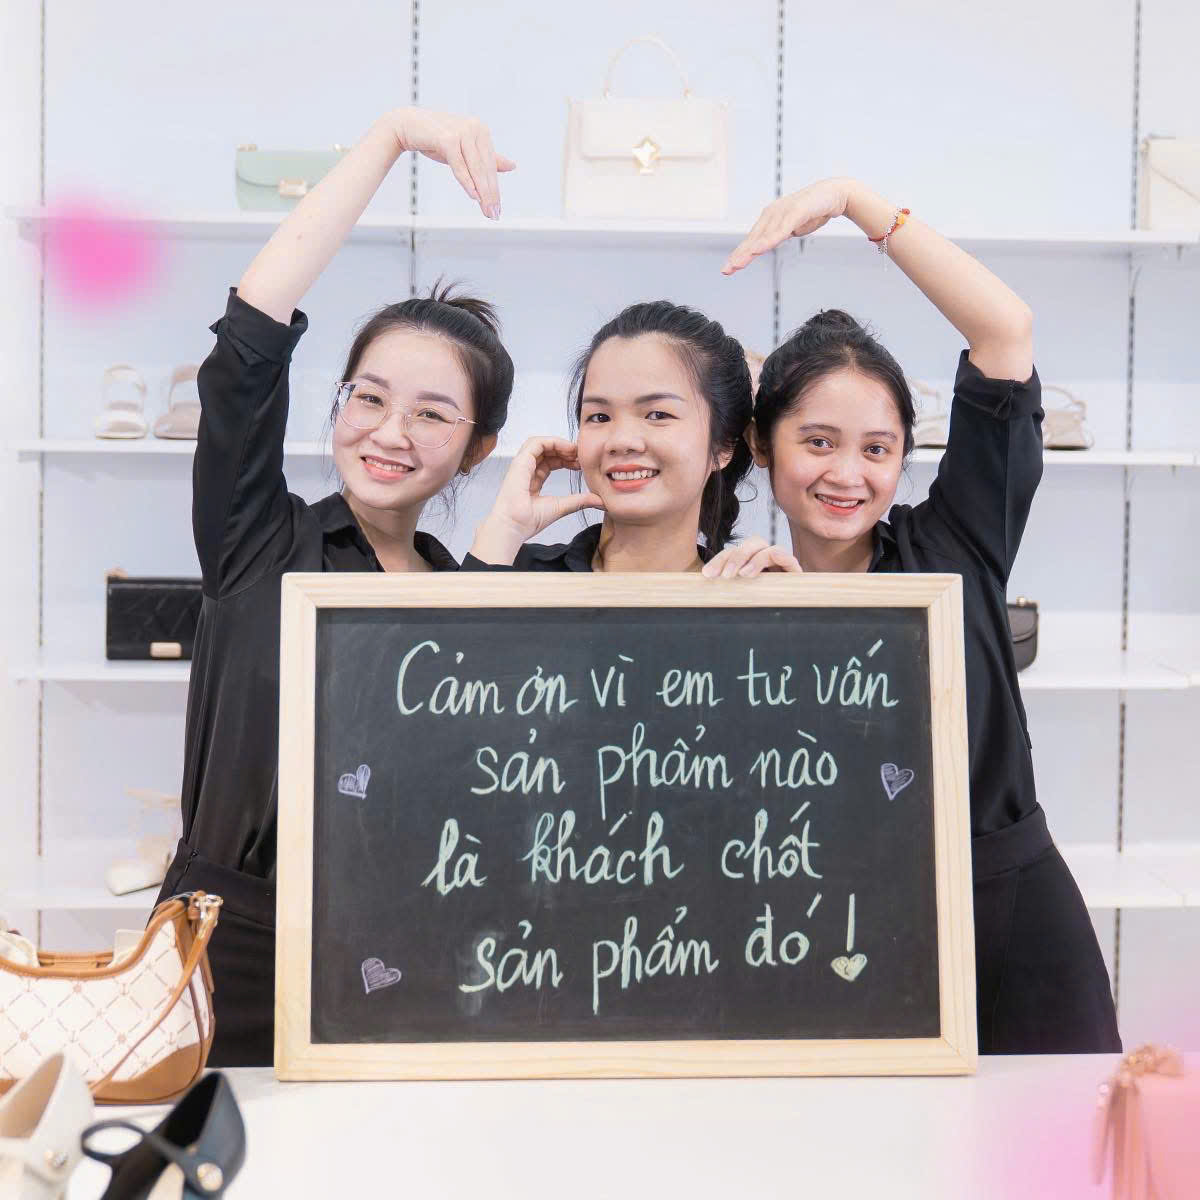 Cảm ơn vì em tư vấn
sản phẩm nào
là khách chốt
sản phẩm đó!